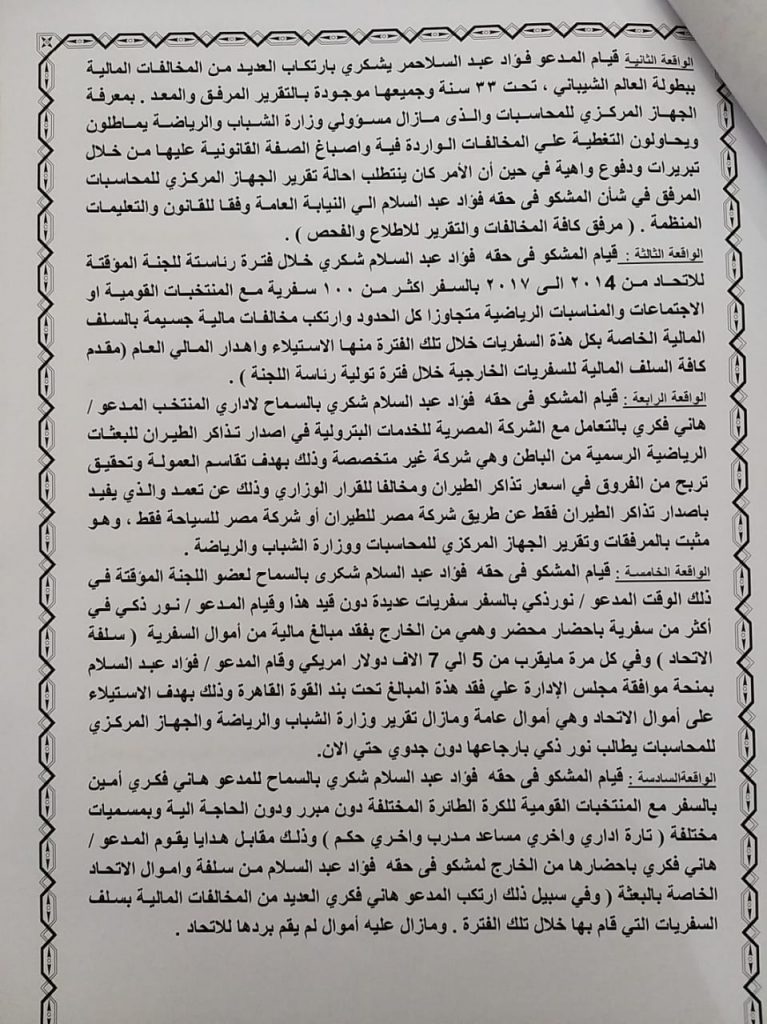 الواقعة الثانية قيام المدعو فؤاد عبد السلاحمر يشكري بارتكاب العديد من المخالفات المالية
ببطولة العالم الشيباني ، تحت ٣٣ سنة وجميعها موجودة بالتقرير المرفق والمعد . بمعرفة
الجهاز المركزي للمحاسبات والذى مازال مسؤولي وزارة الشباب والرياضة يماطلون
ويحاولون التغطية علي المخالفات الواردة فية واصباغ الصفة القانونية عليها من خلال
تبريرات ودفوع واهية في حين أن الأمر كان ينتطلب احالة تقرير الجهاز المركزي للمحاسبات
المرفق في شأن المشكو فى حقه فؤاد عبد السلام الي النيابة العامة وفقا للقانون والتعليمات
المنظمة . ( مرفق كافة المخالفات والتقرير للاطلاع والفحص ) .
الواقعة الثالثة : قيام المشكو فى حقه فؤاد عبد السلام شكري خلال فترة رئاستة للجنة المؤقتة
للاتحاد من 2014 الى ٢٠١٧ بالسفر اكثر من ١٠٠ سفرية مع المنتخبات القومية او
الاجتماعات والمناسبات الرياضية متجاوزا كل الحدود وارتكب مخالفات مالية جسيمة بالسلف
المالية الخاصة بكل هذة السفريات خلال تلك الفترة منها الاستيلاء واهدار المالي العام (مقدم
كافة السلف المالية للسفريات الخارجية خلال فترة تولية رئاسة اللجنة ) .
الواقعة الرابعة : قيام المشكو فى حقه فؤاد عبد السلام شكري بالسماح لاداري المنتخب المدعو /
هاني فكري بالتعامل مع الشركة المصرية للخدمات البترولية في اصدار تذاكر الطيران للبعثات
الرياضية الرسمية من الباطن وهي شركة غير متخصصة وذلك بهدف تقاسم العمولة وتحقيق
تربح من الفروق في اسعار تذاكر الطيران ومخالفا للقرار الوزاري وذلك عن تعمد والذي يفيد
باصدار تذاكر الطيران فقط عن طريق شركة مصر للطيران أو شركة مصر للسياحة فقط ، وهو
مثبت بالمرفقات وتقرير الجهاز المركزي للمحاسبات ووزارة الشباب والرياضة .
الواقعة الخامسة : قيام المشكو فى حقه فؤاد عبد السلام شكرى بالسماح لعضو اللجنة المؤقتة في
ذلك الوقت المدعو / نورذكي بالسفر سفريات عديدة دون قيد هذا وقيام المدعو / نور ذكي في
أكثر من سفرية باحضار محضر وهمي من الخارج بفقد مبالغ مالية من أموال السفرية ( سلفة
الاتحاد ) وفي كل مرة مايقرب من 5 الي 7 الاف دولار امريكي وقام المدعو / فؤاد عبد السلام
بمنحة موافقة مجلس الإدارة علي فقد هذة المبالغ تحت بند القوة القاهرة وذلك بهدف الاستيلاء
على أموال الاتحاد وهي أموال عامة ومازال تقرير وزارة الشباب والرياضة والجهاز المركزي
للمحاسبات يطالب نور ذكي بارجاعها دون جدوي حتي الان.
الواقعةالسادسة : قيام المشكو فى حقه فؤاد عبد السلام شكري بالسماح للمدعو هاني فكري أمين
بالسفر مع المنتخبات القومية للكرة الطائرة المختلفة دون مبرر ودون الحاجة الية وبمسميات
مختلفة ( تارة اداري واخري مساعد مدرب واخري حكم ) وذلك مقابل هدايا يقوم المدعو /
هاني فكري باحضارها من الخارج لمشكو فى حقه فؤاد عبد السلام من سلفة واموال الاتحاد
الخاصة بالبعثة ( وفي سبيل ذلك ارتكب المدعو هاني فكري العديد من المخالفات المالية بسلف
السفريات التي قام بها خلال تلك الفترة . ومازال عليه أموال لم يقم بردها للاتحاد .